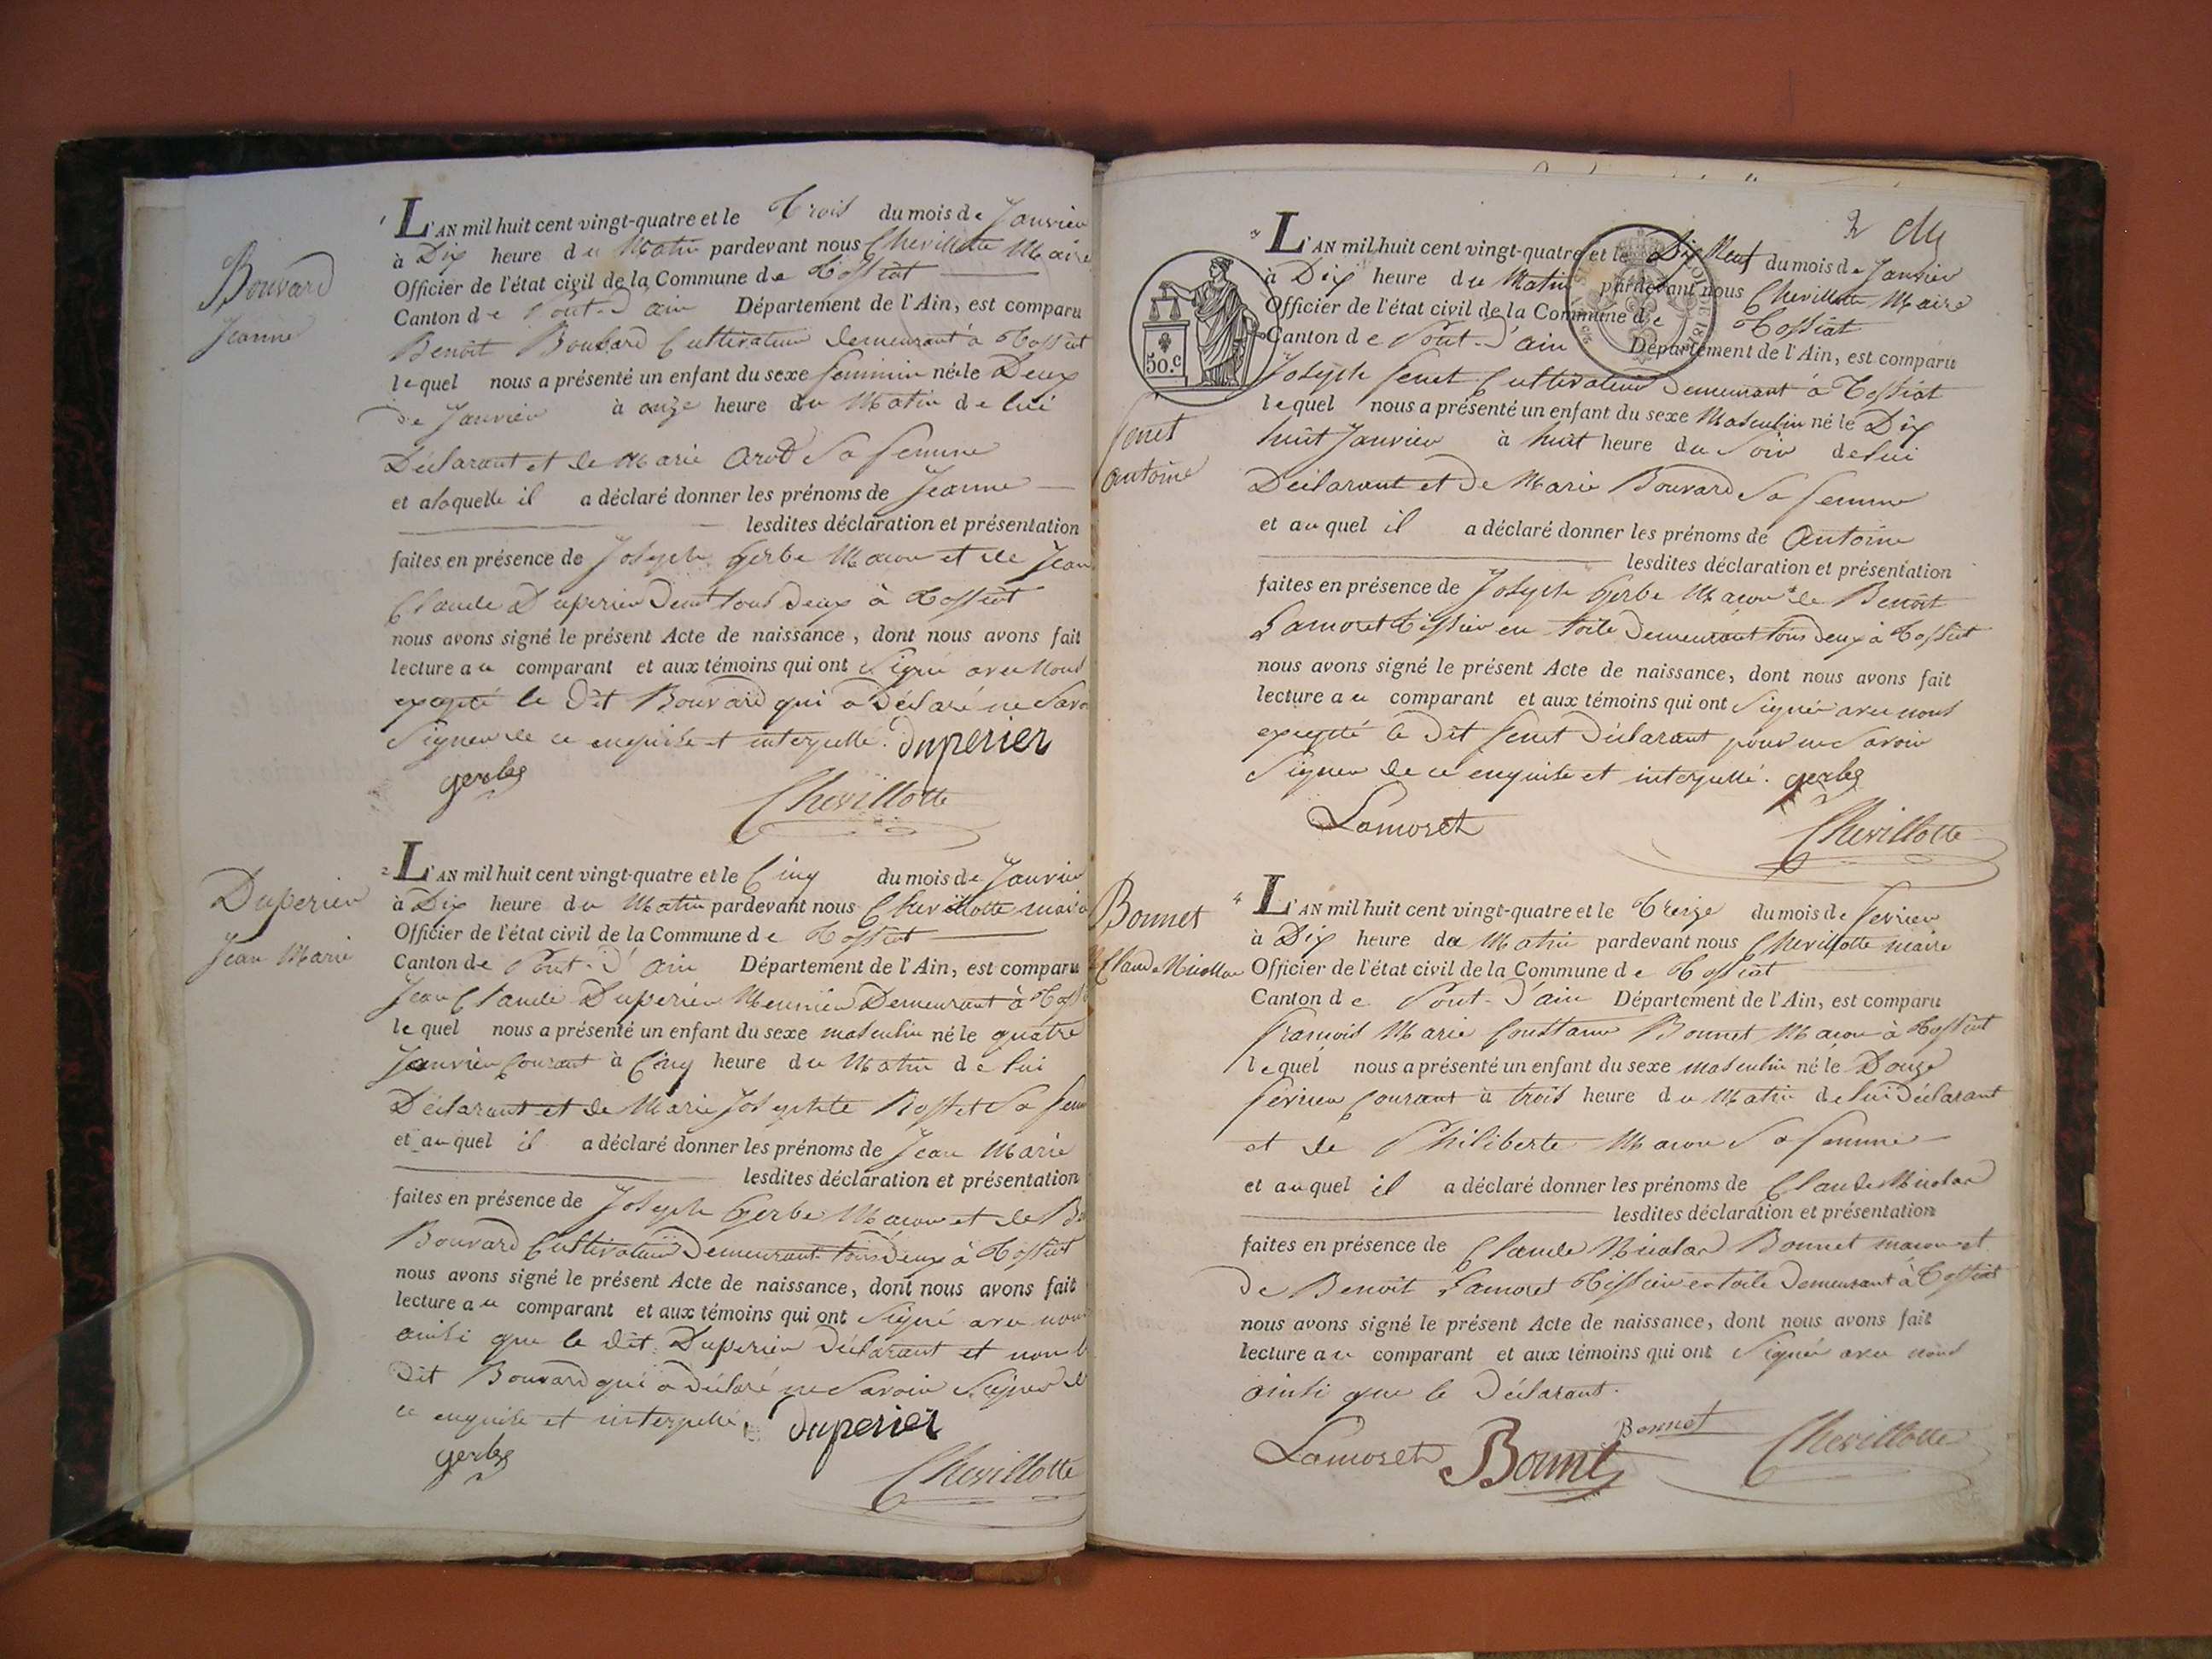 Bouvard
Jeanne
1 L'AN mil huit cent vingt-quatre et le Trois du mois de Janvier
à Dix heure du Matin pardevant nous Chevillotte Maire
Officier de l'état civil de la Commune de Tossiat
Canton de Pont-d'ain Département de l'Ain, est comparu
Benoit Bouvard Cultivateur demeurant à Tossiat
lequel nous a présenté un enfant du sexe feminin né le Deux
de Janvier à onze heure du Matin de lui
Déclarant et de Marie Sa femme
et alaquelle il a déclaré donner les prénoms de Jeanne
lesdites déclaration et présentation
faites en présence de Joseph Gerbe Macon et de Jean
Claude Duperier demt tous deux à Tossiat
nous avons signé le présent Acte de naissance, dont nous avons fait
lecture au comparant et aux témoins qui ont Signé avec Nous
excepté le Dit Bouvard qui a Déclaré ne Savo
Signer de ce enquise et interpellé. Duperier
gerbe
Chevillotte
Duperier
Jean Marie
2 L'AN mil huit cent vingt-quatre et le Cinq du mois de Janvier
à Dix heure du Matin pardevant nous Chevillotte maire
Officier de l'état civil de la Commune de Tossiat
Canton de Pont-d'Ain Département de l'Ain, est comparu
Jean Claude Duperier Meunier Demeurant à Toss
lequel nous a présenté un enfant du sexe masculin né le quatre
Janvier Courant à Cinq heure du Matin de lui
Déclarant et de Marie Josephte Rosset Sa fem
et auquel il a déclaré donner les prénoms de Jean Marie
lesdites déclaration et présentation
faites en présence de Joseph Gerbe Macon et de Be
Bouvard Cultivateur Demeurant tous deux à Tossiat
nous avons signé le présent Acte de naissance, dont nous avons fait
lecture au comparant et aux témoins qui ont Signé avec nous
ainsi que le dit Duperier Déclarant et non l
Dit Bouvard qui a Déclaré ne Savoir Signer d
ce enquise et interpellé. Duperier
gerbe
Chevillotte
2
50.c
3 L'AN mil huit cent vingt-quatre et le Dix Neuf du mois de Janvier
à Dix heure du Matin pardevant nous Chevillotte Maire
Officier de l'état civil de la Commune de Tossiat
Canton de Pont-d'ain Département de l'Ain, est comparu
Joseph fenet Cultivateur Demeurant à Tossiat
lequel nous a présenté un enfant du sexe Masculin né le Dix
huit Janvier à huit heure du Soir de lui
Déclarant et De Marie Bouvard Sa femme
et auquel il a déclaré donner les prénoms de Antoine
lesdites déclaration et présentation
faites en présence de Joseph Gerbe Macon & de Benoit
Lamoret Tissier en toile Demeurant tous deux à Tossiat
nous avons signé le présent Acte de naissance, dont nous avons fait
lecture au comparant et aux témoins qui ont Signé avec nous
excepté le Dit fenet Déclarant pour ne Savoir
Signer de ce enquise et interpellé. gerbe
Lamoret
Chevillotte
fenet
antoine
Bonnet
Claude Nicolas
4 L'AN mil huit cent vingt-quatre et le Treize du mois de fevrier
à Dix heure du Matin pardevant nous Chevillotte maire
Officier de l'état civil de la Commune de Tossiat
Canton de Pont-d'ain Département de l'Ain, est comparu
francois Marie Constant Bonnet Macon à Tossiat
lequel nous a présenté un enfant du sexe masculin né le Douze
fevrier Courant à trois heure du Matin de lui Déclarant
et de Philiberte Macon Sa femme
et auquel il a déclaré donner les prénoms de Claude Nicolas
lesdites déclaration et présentation
faites en présence de Claude Nicolas Bonnet macon et
de Benoit Lamoret Tissier en toile Demeurant à Tossiat
nous avons signé le présent Acte de naissance, dont nous avons fait
lecture au comparant et aux témoins qui ont Signé avec nous
ainsi que le Déclarant.
Lamoret Bonnet Bonnet Chevillotte